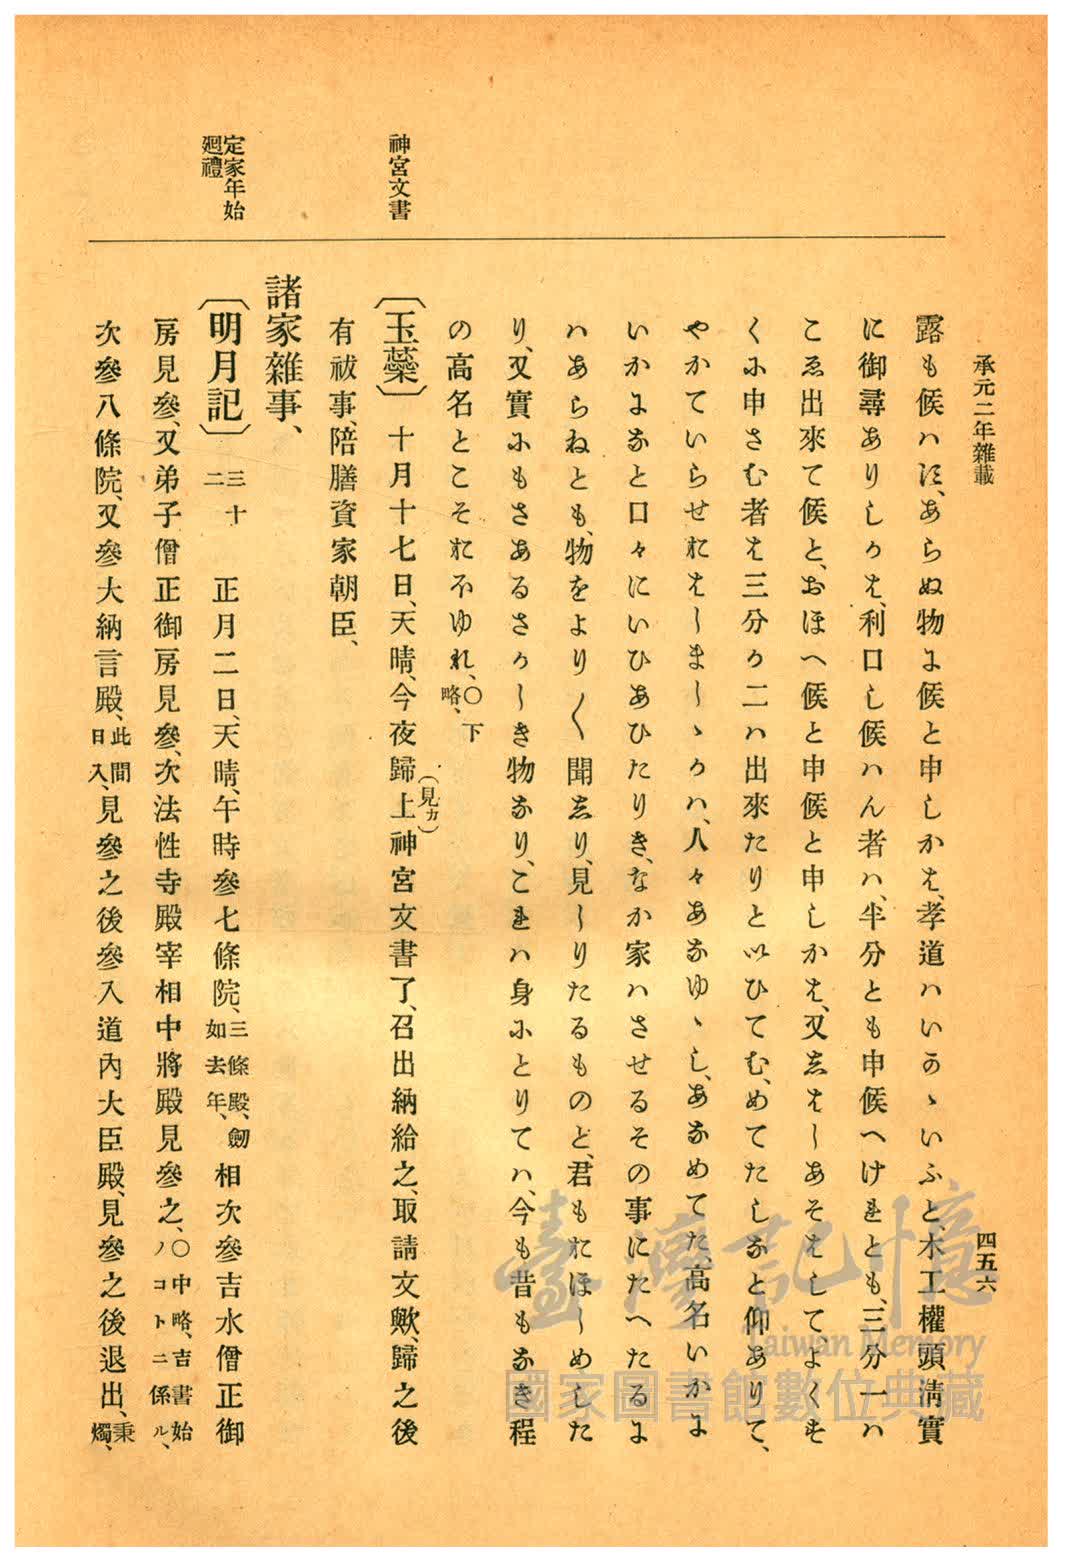 承元二年雜載
四五六
露も候ハに、あらぬ物よ候と申しかえ、孝道ハいのゝいふと、木工權頭淸實
に御尋ありしかえ、利口し候ハん者ハ、半分とも申候へけれとも、三分一ハ
こゑ出來て候と、おほへ候と申候と申しかえ、又ゑえしあそえして、よくも
くふ申さむ者え三分か二ハ出來たりといひてむ、めてたしなと仰ありて、
やかていらせおえしましゝかハ、人々あなゆゝし、あなめてた、高名いかよ
いかよなと口々にいひあひたりき、なか家ハさせるその事にたへたるよ
ハあらねとも、物をより〱聞ゑり、見しりたるものと、君もおほしめした
り、又實ふもさあるさかしき物なり、これハ身ふとりてハ、今も昔もなき程
の高名とこそお不ゆれ、〇下略、
神宮文書
〔玉蘂〕十月十七日、天晴、今夜歸上(見カ)神宮文書了、召出納給之、取請文歟、歸之後
有祓事、陪膳資家朝臣、
諸家雜事、
定家年始
廻禮
〔明月記〕三十二 正月二日、天晴、午時參七條院、三條殿、劒如去年、相次參吉水僧正御
房見參、又弟子僧正御房見參、次法性寺殿宰相中將殿見參之、〇中略、吉書始ノコトニ係ル、
次參八條院、又參大納言殿、此間日入、見參之後參入道內大臣殿、見參之後退出、秉燭、
臺灣記憶
Taiwan Memory
國家圖書館數位典藏